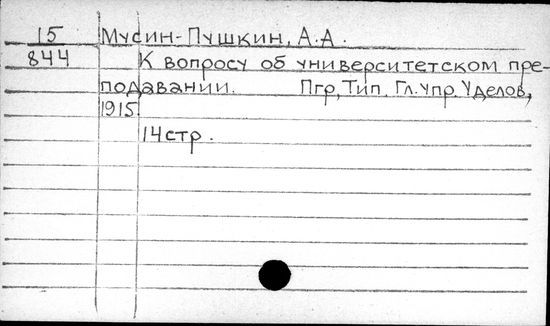 15 Мусин-Пушкин, А.А.
844 К вопросу об университетском пре-
подавании. Пгр, Тип. Гл. Упр. Уделов,
1915
14 стр.